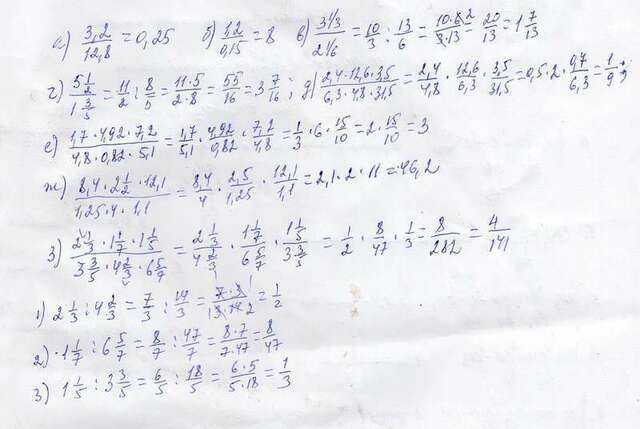 а) 3,2/12,8 = 0,25 б) 1,2/0,15 = 8 в) 3 1/3 / 2 1/6 = 10/3 : 13/6 = 10·6 2/3·13 = 20/13 = 1 7/13
г) 5 1/2 / 1 3/5 = 11/2 : 8/5 = 11·5/2·8 = 55/16 = 3 7/16 ; д) 2,4·12,6·3,5/6,3·4,8·31,5 = 2,4/4,8 · 12,6/6,3 · 3,5/31,5 = 0,5·2·0,7/6,3 = 1/9 ;
е) 1,7·4,92·7,2/4,8·0,82·5,1 = 1,7/5,1 · 4,92/0,82 · 7,2/4,8 = 1/3 · 6 · 15/10 = 2 · 15/10 = 3
ж) 8,4·2 1/2·12,1/1,25·4·1,1 = 8,4/4 · 2,5/1,25 · 12,1/1,1 = 2,1·2·11 = 46,2
з) 2 1/3·1 1/7·1 1/5 / 3 3/5·4 2/3·6 5/7 = 2 1/3 / 4 2/3 · 1 1/7 / 6 5/7 · 1 1/5 / 3 3/5 = 1/2 · 8/47 · 1/3 = 8/282 = 4/141
1) 2 1/3 : 4 2/3 = 7/3 : 14/3 = 7·3/3·14 2 = 1/2
2) ·1 1/7 : 6 5/7 = 8/7 : 47/7 = 8·7/7·47 = 8/47
3) 1 1/5 : 3 3/5 = 6/5 : 18/5 = 6·5/5·18 = 1/3